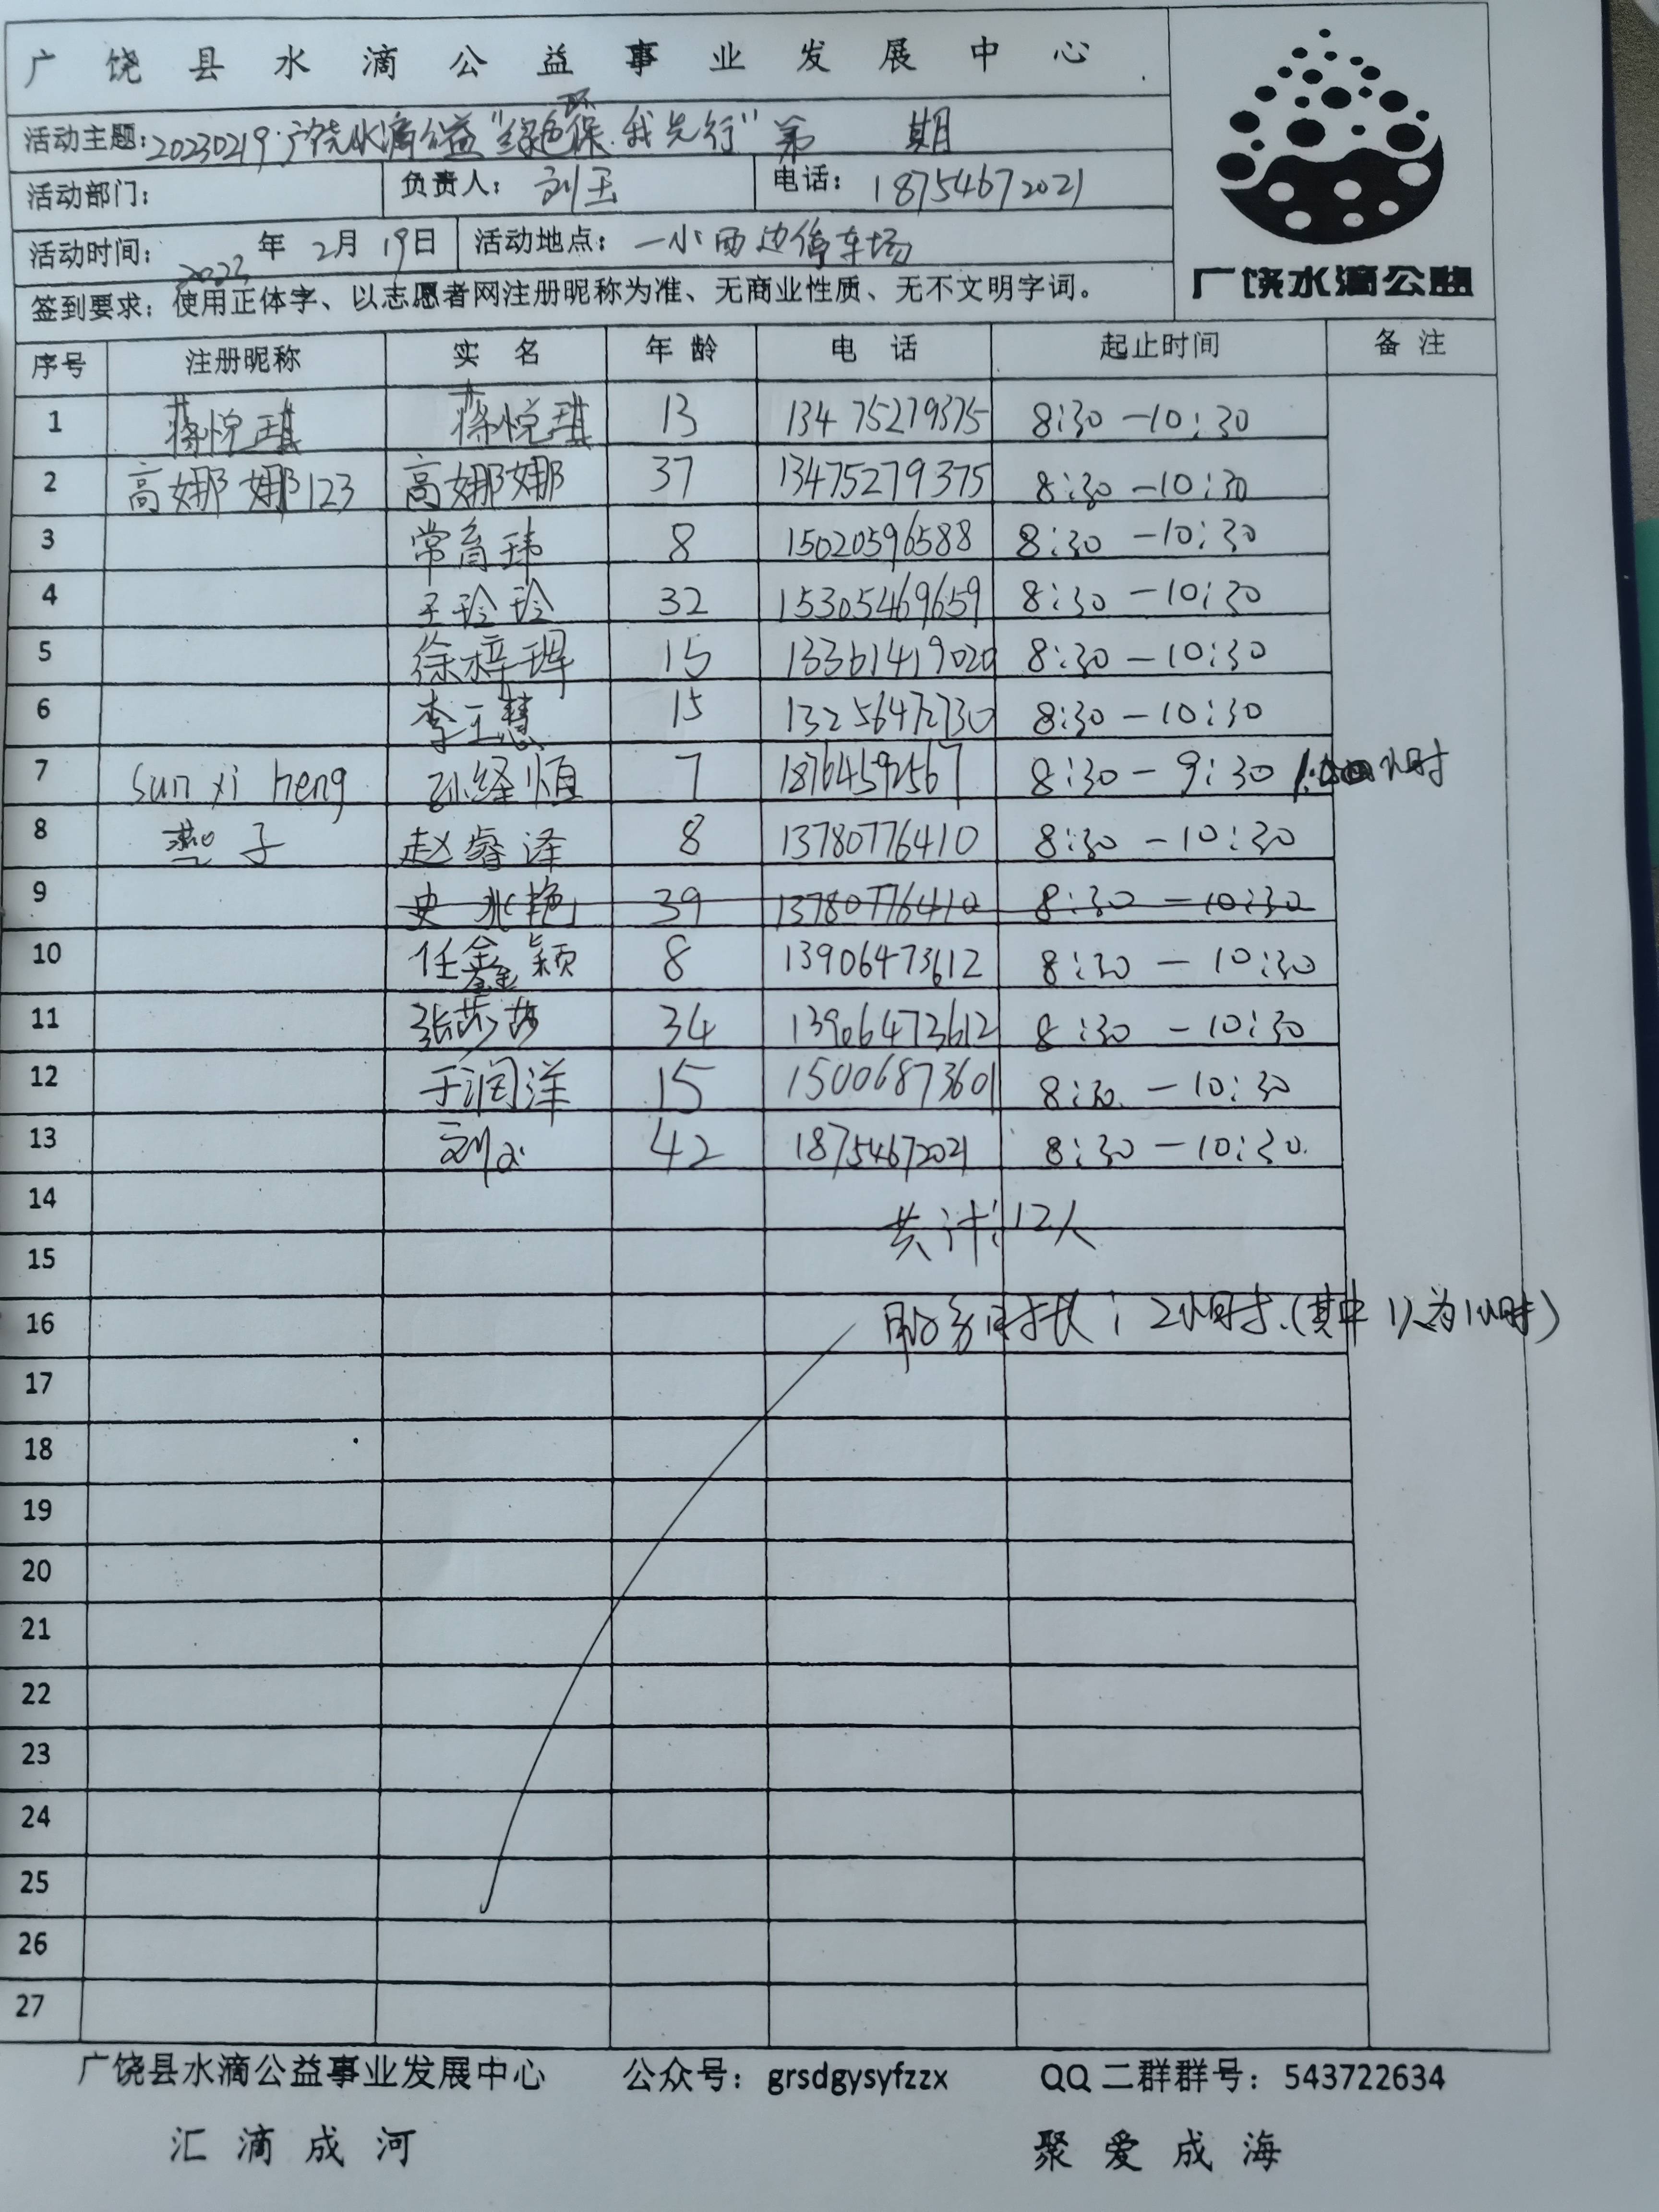 广饶县水滴公益事业发展中心
活动主题:20230219·广饶水滴公益"绿色环保·我先行"第 期
活动部门: 负责人: 刘玉 电话: 18754672021
活动时间: 2023年2月19日 活动地点: 一小西边停车场
签到要求: 使用正体字、以志愿者网注册昵称为准、无商业性质、无不文明字词。
广饶水滴公益
序号 注册昵称 实名 年龄 电话 起止时间 备注
1 蒋悦琪 蒋悦琪 13 13475279375 8:30-10:30
2 高娜娜123 高娜娜 37 13475279375 8:30-10:30
3 常育玮 8 15020596588 8:30-10:30
4 王玲玲 32 15305469659 8:30-10:30
5 徐梓珲 15 13361419020 8:30-10:30
6 李玉慧 15 13256472730 8:30-10:30
7 sun xi heng 孙 恒 7 18764592567 8:30-9:30 小时
8 子 赵睿泽 8 13780776410 8:30-10:30
9 史 艳 39 13780776410 8:30-10:30
10 任鑫颖 8 13906473612 8:30-10:30
11 张莎莎 34 13906473612 8:30-10:30
12 于润洋 15 15006873601 8:30-10:30
13 刘 42 18754672021 8:30-10:30
14
共计:12人
15
16 服务时长:2小时.(其中1人为1小时)
17
18
19
20
21
22
23
24
25
26
27
广饶县水滴公益事业发展中心 公众号: grsdgysyfzzx QQ二群群号: 543722634
汇滴成河 聚爱成海